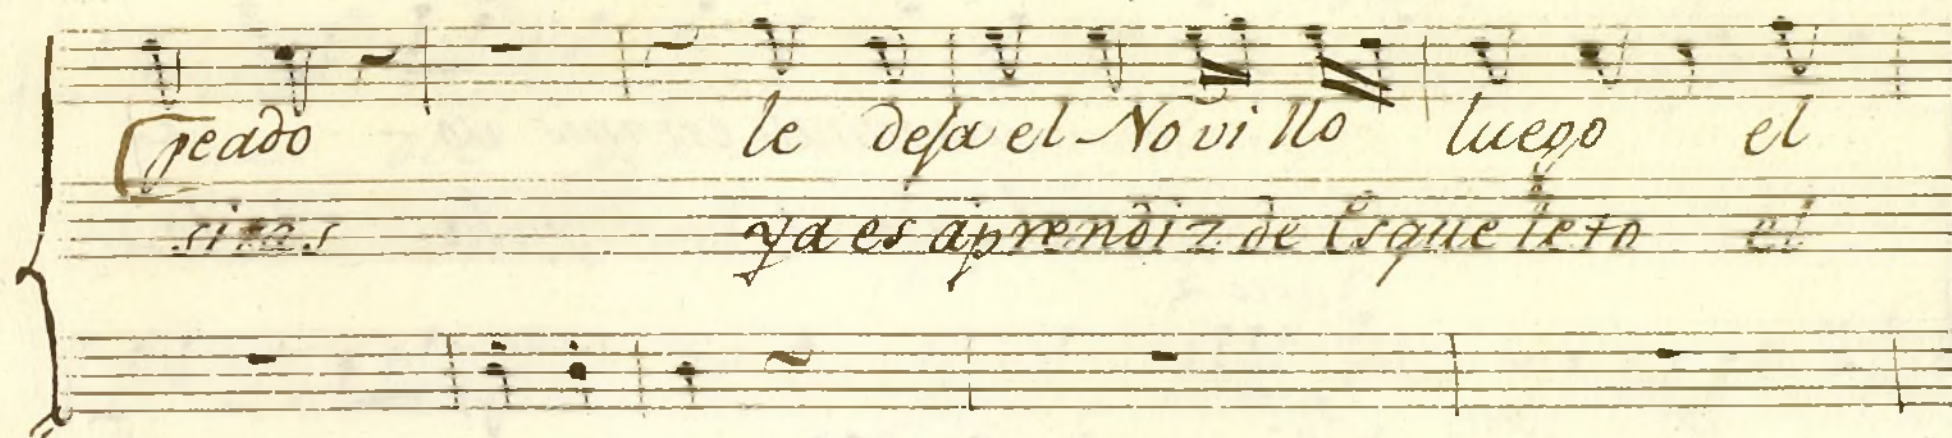 peado le deja el Novillo luego el
sitas ya es aprendiz de Esqueleto el